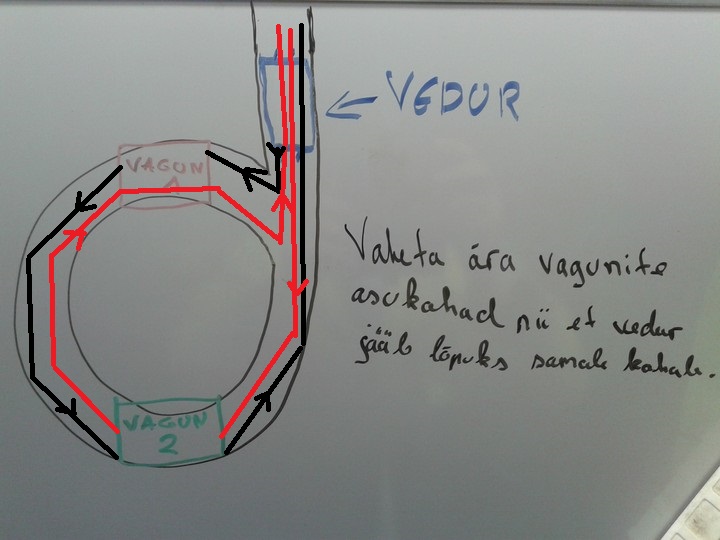 VEDUR
VAGUN
1
Vaheta ära vagunite
asukohad nii et vedur
jääb lõpuks samale kohale.
VAGUN
2